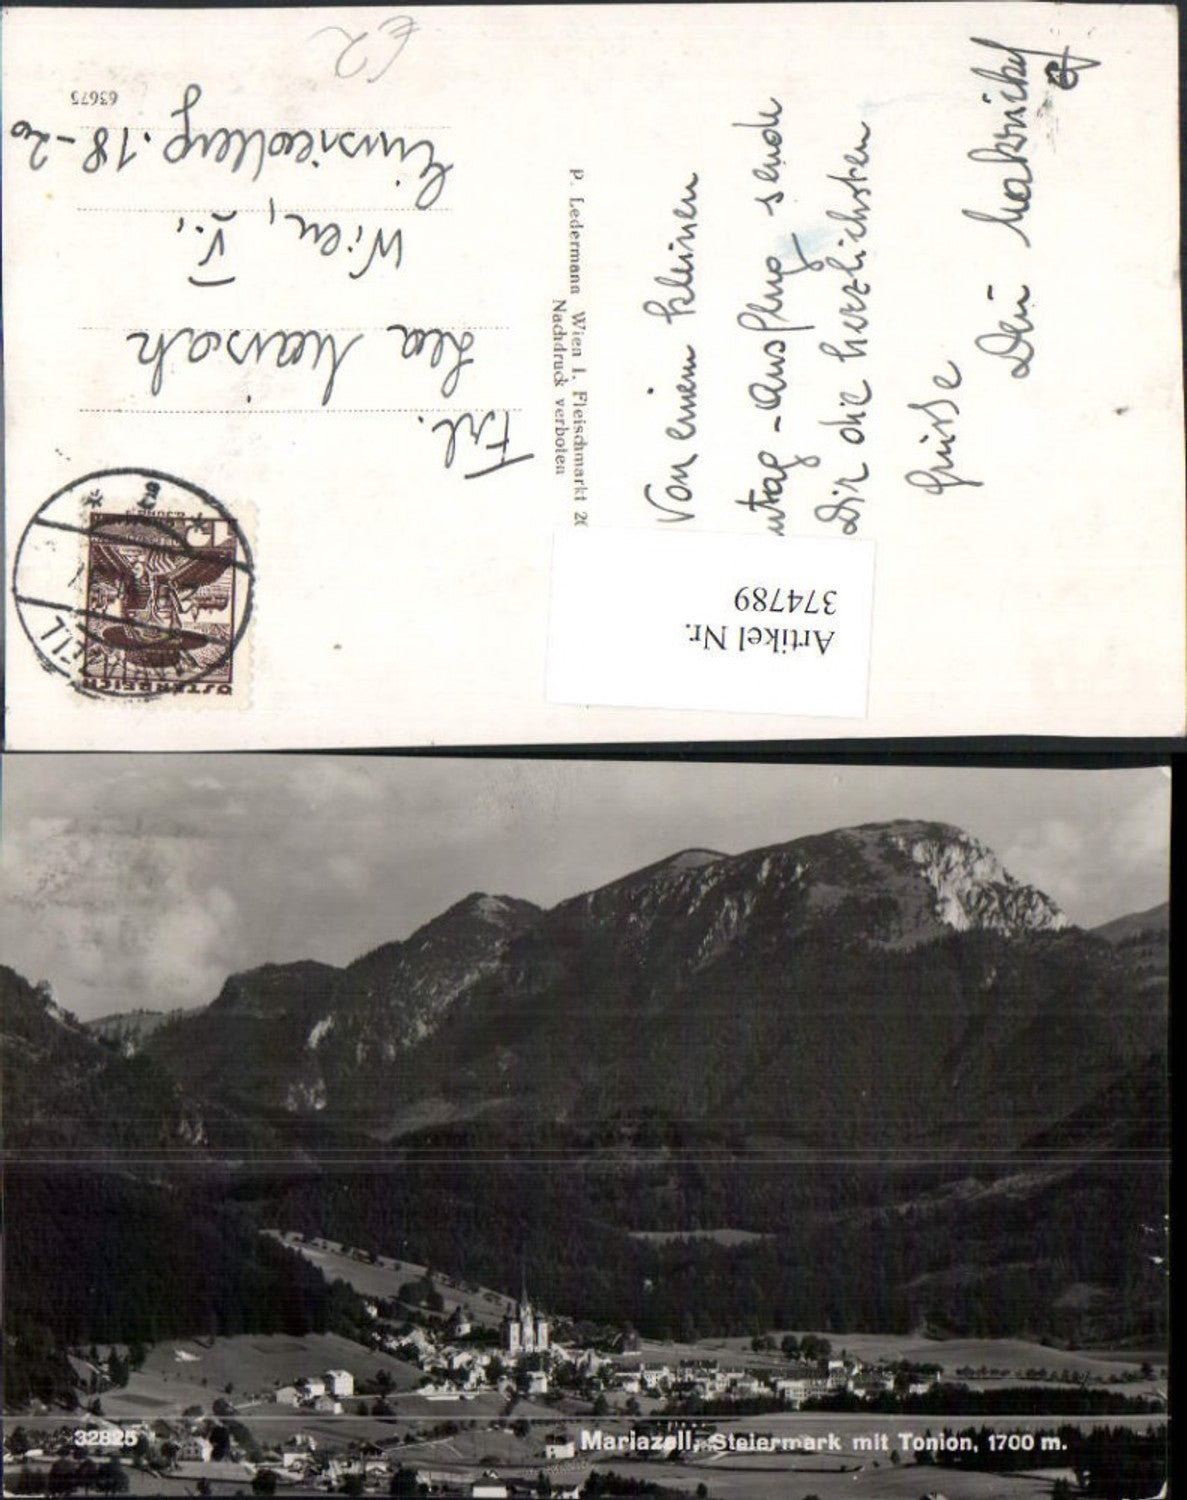 €2
63675
Frl.
Lea
Wien, V.,
Einsiedlerg. 18-20
ÖSTERREICH
P. Ledermann Wien I, Fleischmarkt 20
Nachdruck verboten
Von einem kleinen
-Ausflug sende
Dir die herzlichsten
Grüsse
Dein
Artikel Nr.
374789
32825
Mariazell, Steiermark mit Tonion, 1700 m.